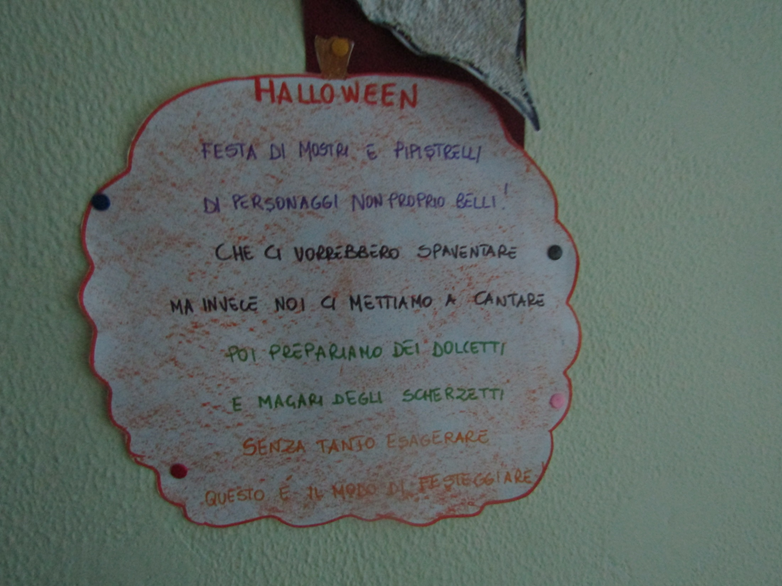 HALLOWEEN
FESTA DI MOSTRI E PIPISTRELLI
DI PERSONAGGI NON PROPRIO BELLI!
CHE CI VORREBBERO SPAVENTARE
MA INVECE NOI CI METTIAMO A CANTARE
POI PREPARIAMO DEI DOLCETTI
E MAGARI DEGLI SCHERZETTI
SENZA TANTO ESAGERARE
QUESTO É IL MODO DI FESTEGGIARE!